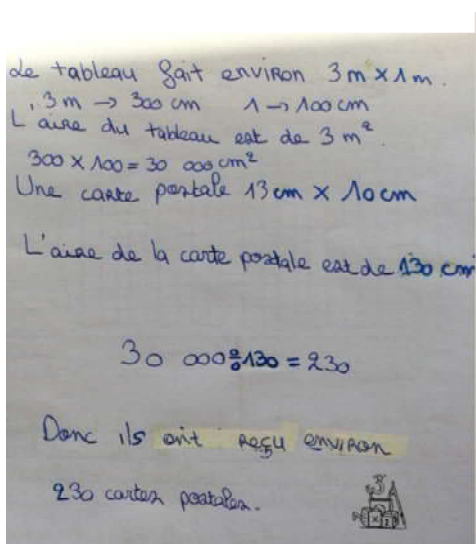 Le tableau fait environ 3 m × 1 m.
3 m → 300 cm 1 → 100 cm
L'aire du tableau est de 3 m².
300 × 100 = 30 000 cm²
Une carte postale 13 cm × 10 cm
L'aire de la carte postale est de 130 cm
30 000 ÷ 130 = 230
Donc ils ont reçu environ
230 cartes postales.